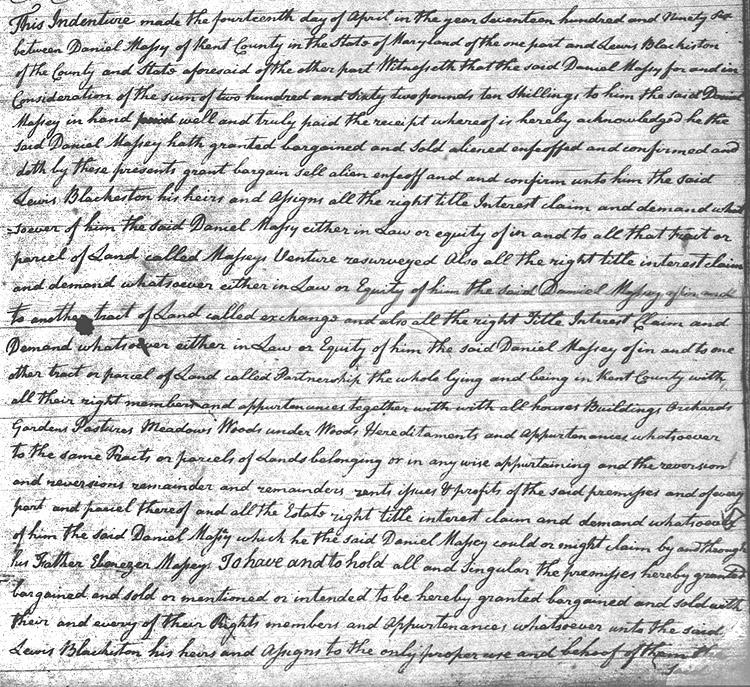 This Indenture made the fourteenth day of April in the year Seventeen hundred and Ninety Six
between Daniel Massy of Kent County in the State of Maryland of the one part and Lewis Blackiston
of the County and State aforesaid of the other part Witnesseth that the said Daniel Massey for and in
Consideration of the sum of two hundred and Sixty two pounds ten Shillings to him the said Daniel
Massey in hand paid well and truly paid the receipt whereof is hereby acknowledged he the
said Daniel Massey hath granted bargained and Sold aliened enfeoffed and confirmed and
doth by these presents grant bargain sell alien enfeoff and and confirm unto him the said
Lewis Blackeston his heirs and Assigns all the right title Interest claim and demand what
-soever of him the said Daniel Massy either in Law or equity of in and to all that tract or
parcel of Land called Masseys Venture resurveyed Also all the right title interest claim
and demand whatsoever either in Law or Equity of him the said Daniel Massey of in and
to another tract of Land called exchange and also all the right Title Interest Claim and
Demand whatsoever either in Law or Equity of him the said Daniel Massey of in and to one
other tract or parcel of Land called Partnership the whole lying and being in Kent County with
all their right members and appurtenances together with with all houses Buildings Orchards
Gardens Pastures Meadows Woods under Woods Hereditaments and Appurtenances whatsoever
to the same Tracts or parcels of Lands belonging or in any wise appurtaining and the reversion
and reversions remainder and remainders rents issues & profits of the said premisses and of every
part and parcel thereof and all the Estate right title interest claim and demand whatsoever
of him the said Daniel Massy which he the said Daniel Massey could or might claim by and through
his Father Ebenezer Massey. To have and to hold all and Singular the premisses hereby granted
bargained and sold or mentioned or intended to be hereby granted bargained and sold with
their and every of their Rights members and Appurtenances whatsoever unto the said
Lewis Blackiston his heirs and Assigns to the only proper use and behoof of them